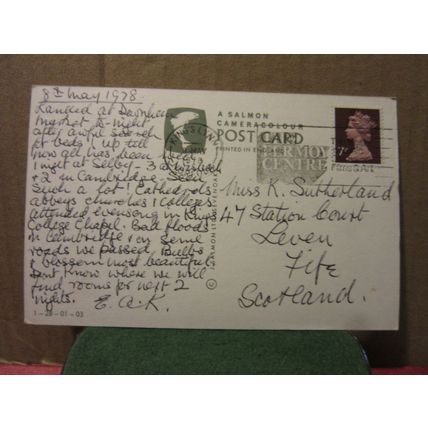 8th May 1978
Landed at Downham
Market to-night
after awful search
for beds! Up till
now all has been well.
1 night at Selby - 3 at Norwich
+ 2 in Cambridge. Seen
such a lot! Cathedrals
abbeys churches + colleges
attended evensong in Kings
College Chapel. Bad floods
in Cambridge + on some
roads we passed. Bulbs
+ blossom most beautiful
Dont know where we will
find rooms for next 2
nights. E.A.K.
1-28-01-03
© J SALMON LTD SEVENOAKS
A SALMON
CAMERACOLOUR
POST CARD
PRINTED IN ENGLAND
KINGS LYNN
MAY
CENTRE
Miss K. Sutherland
47 Station Court
Leven
Fife
Scotland.